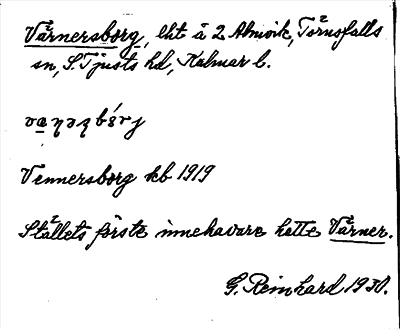 Värnersborg, lht å 2 Almvik, Törnsfalls
sn, S. Tjusts hd, Kalmar l.
Vennersborg kb 1919
Stället's förste innehavare hette Värner.
G. Reinhard 1930.